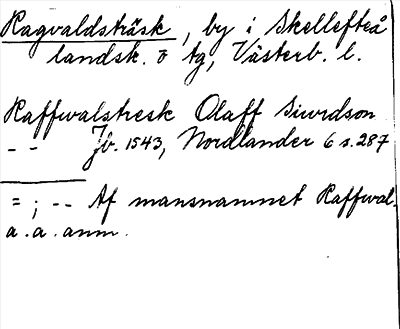 Ragvaldsträsk, by i Skellefteå
landsk. o tg, Västerb. l.
Raffwalstresk Olaff Siurdson
-- Jb. 1543, Nordlander 6 s. 287
= ; -- Af mansnamnet Raffwal.
a. a. anm.